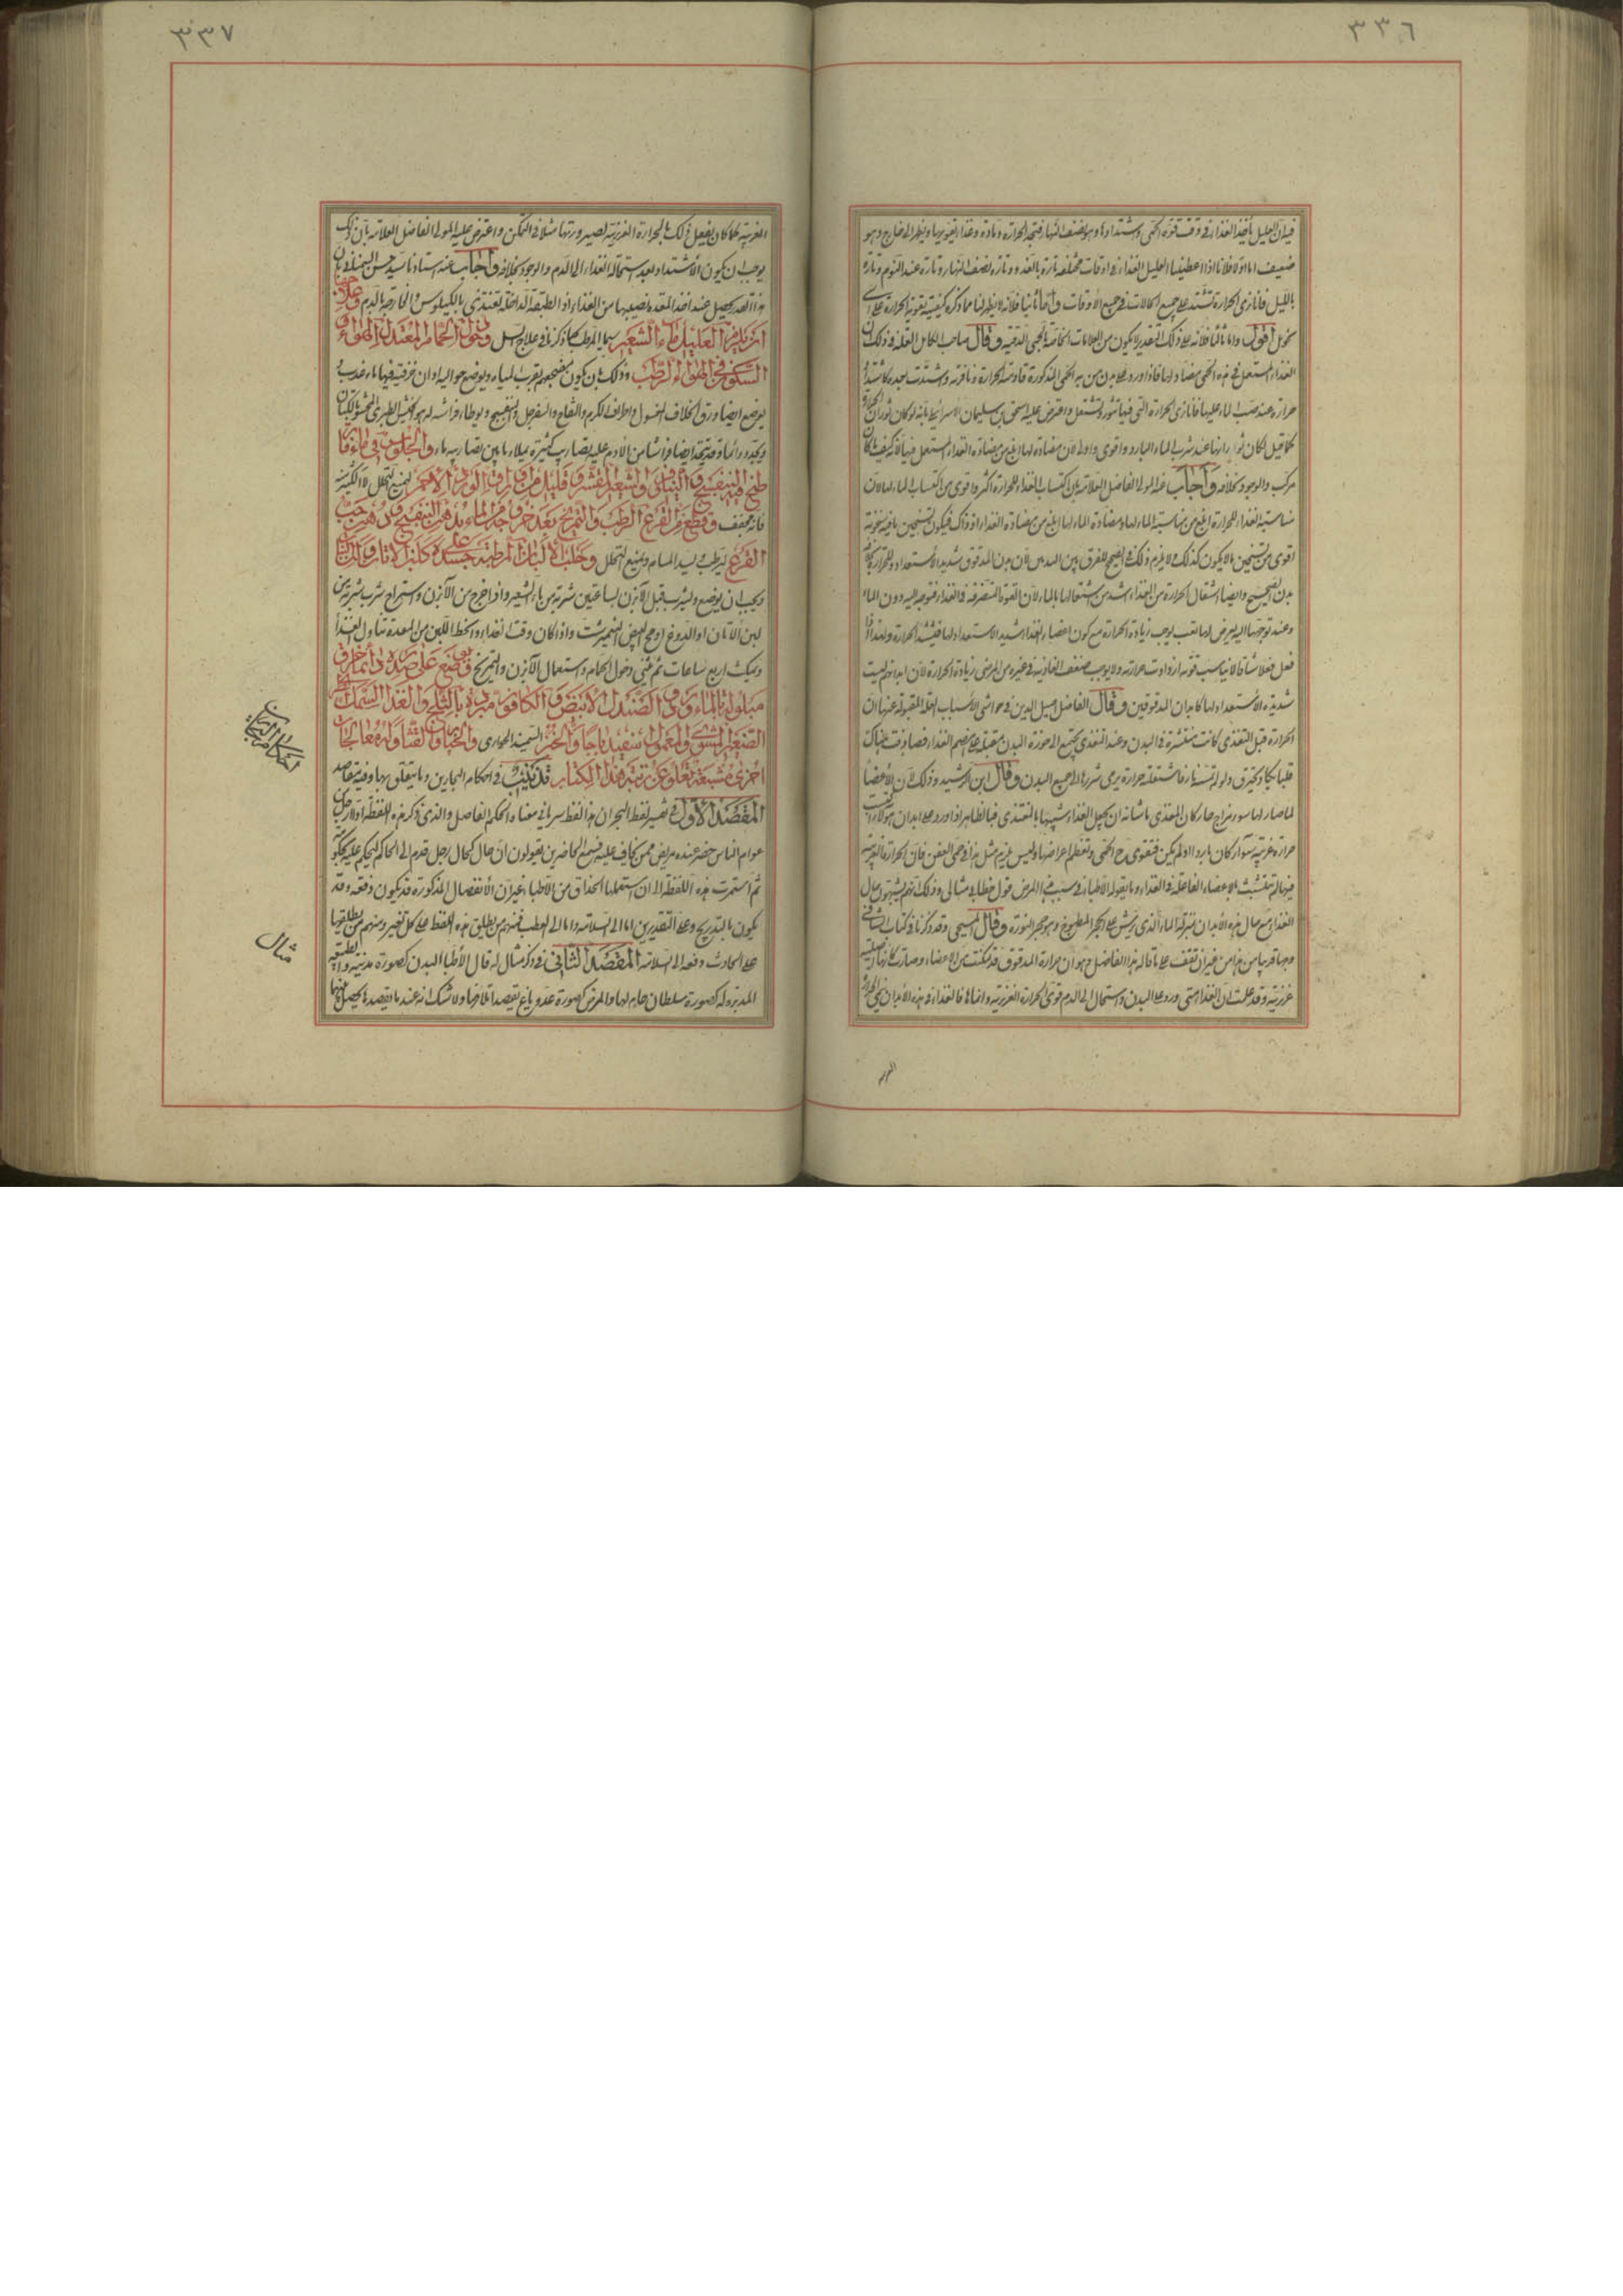 ٣٣٦
فيه ان العليل يأخذ الغذاء في وقت قوة الحمى واشتدادها وهو نصف النهار فتجد الحرارة مادة وغذاء يقويها ويظهر الى خارج وهو
ضعيف اما اولا فلانا اذا اعطينا العليل الغذاء في اوقات مختلفة تارة بالغدو وتارة نصف النهار وتارة عند النوم وتارة
بالليل فانا نرى الحرارة تشتد على جميع الحالات في جميع الأوقات واما ثانيا فلانه لا يظهر لنا مما ذكره كيفية تقوية الحرارة على اى
نحو اقول واما ثالثا فلانه على ذلك التقدير لا يكون من العلامات الخاصة بالحمى الدقية وقال صاحب الكامل العلة في ذلك ان
الغذاء المستعمل في هذه الحمى مضاد لها فاذا ورد على بدن من به الحمى المذكورة قاومته الحرارة ونافرته واشتدت لمجاهدته كما تشتد
حرارة عند صب الماء عليها فانا نرى الحرارة التي فيها تثور وتشتعل واعترض عليه اسحق بن سليمان الاسرائيلي بانه لو كان ثوران الحرارة
كما قيل لكان ثورانها عند شرب الماء البارد اقوى واولى لان مضادة لها ابلغ من مضادة الغذاء المستعمل فيها لانه كيف ما كان
مركب والوجود بخلافه واجاب عنه المولى الفاضل العلامة بان اكتساب الغذاء للحرارة اكثر واقوى من اكتساب الماء لها لان
مناسبة الغذاء للحرارة ابلغ من مناسبة الماء لها ومضادة الماء لها ابلغ من مضادة الغذاء اذ ذاك فيكون تسخين ما فيه سخونة
اقوى من تسخين ما لا يكون كذلك ولا يلزم ذلك في الصحيح للفرق بين البدنين لان بدن المدقوق شديد الاستعداد للحرارة بخلاف
بدن الصحيح وايضا اشتعال الحرارة من الغذاء اشد من اشتعالها بالماء لان القوة المتصرفة في الغذاء متوجه اليه دون الماء
وعند توجهها اليه يعرض لها التعب يوجب زيادة الحرارة مع كون اعضاء الغذاء شديد الاستعداد لها فتشتد الحرارة ولهذا اذا
فعل فعلا شاقا لا يناسب قوته ازدادت حرارته ولا يوجب ضعف الغاذية في غيره من المرضى زيادة الحرارة لان ابدانهم ليست
شديدة الاستعداد لها كابدان المدقوقين وقال الفاضل جميل الدين في حواشي الأسباب العلة المقبولة عنها ان
الحرارة قبل التغذى كانت منتشرة في البدن وعند التغذى تجتمع الى حوزة البدن مقبلة على هضم الغذاء فصادفت هناك
وقال ابن الرشيد وذلك لان الأعضاء
لما صار لها سوء مزاج حار كان المغذى ما شانه ان يحيل الغذاء شبيها بالمغتذى
حرارة غريبة سواء كان باردا او لم يكن فتقوى هذه الحمى وتعظم اعراضها وليس يلزم مثل هذا في حمى العفن فان الحرارة الغريبة
فيها لم تتشبث بالاعضاء الفاعلة في الغذاء وما يقوله الأطباء في سبب هذا المرض قول خطابى مثالى وذلك انهم يشبهون حال
الغذاء مع حال هذه الأبدان بمنزلة الماء الذى يرش على الحجر المطبوخ وهو حجر النورة وقال المسيحى وقد ذكرنا في كتاب الشافى
وجها قريبا من هذا من غير ان نقف على ما قاله هذا الفاضل وهو ان حرارة المدقوق قد تمكنت من الاعضاء وصارت كانها اصلية
غريزية وقد علمت ان الغذاء متى ورد على البدن واستحال الى الدم قوى الحرارة الغريزية وانماها فالغذاء في هذه الأبدان ينمى الحرارة
الغريبة
٣٣٧
الغريبة كما كان يفعل ذلك بالحرارة الغريزية لصيرورتها مثلا في التمكن واعترض عليه المولى الفاضل العلامة بان ذلك
يوجب ان يكون الاشتداد بعد استحالة الغذاء الى الدم والوجود بخلافه واجاب عنه استاذنا سيد حسن
هذا القدر يحصل عند اخذ المعدة نصيبها من الغذاء اذ الطبقة الداخلة تغتذى بالكيلوس والخارجة بالدم وعلاجها
ان يلزم العليل ماء الشعير سيما المرطب كما ذكرنا في علاج السل ودخول الحمام المعتدل الهواء و
السكون في الهواء الرطب وذلك بان يكون مضجعهم بقرب المياه ويوضع حواليه اوان خزفية فيها ماء عذب
يوضع ايضا ورق الخلاف المغسول واطراف الكرم والتفاح والسفرجل والبنفسج ويوطاء فراشه
ويجدد دائما وقد يتخذ ايضا فراشا من الأدم والجلوس في ماء قد
طبخ فيه البنفسج والنيلوفر والشعير المقشر وقليل من ورق الورد الاحمر ليمنع التحلل لا الكثير منه
فانه مجفف وقطع من القرع الرطب والتمريخ بعد خروجه من الماء بدهن البنفسج ودهن حب
القرع ليرطب ويسد المسام ويمنع التحلل وحلب الألبان المرطبة على جسده كلبن الأتان والمراة
ويجب ان يوضع ويشرب قبل الآبزن لساعتين شربة من ماء الشعير واذا خرج من الآبزن واستراح شرب شربة من
لبن الأتان او الدوغ او مح البيض النيمبرشت واذا كان وقت الغذاء وانحط اللبن من المعدة تناول الغذاء
ويمكث اربع ساعات ثم يثنى دخول الحمام واستعمال الآبزن والتمريخ ويوضع على صدره دائما خرق
مبلولة بالماء ورد والصندل الأبيض والكافور مبردة بالثلج والغذاء السمك
الصغير المشوى والمعمول اسفيدباجا والخبز السميد الحوارى والخيار والقثاء وله معالجات
اخرى مشبعة تعلو عن رتبة هذا الكتاب تذنيب في احكام البحارين وما يتعلق بها وفيه مقاصد
المقصد الأول في تفسير لفظ البحران هذا لفظ سرياني معناه الحكم الفاصل والذى ذكر هذه اللفظة اولا رجل من
عوام الناس حضر عنده مريض فسمع الحاضرين يقولون ان حال كحال رجل قدم الى الحاكم ليحكم عليه
ثم استمرت هذه اللفظة الى ان استعملها الحذاق من الاطباء غير ان الانفصال المذكورة قد يكون دفعة وقد
يكون بالتدريج وعلى التقديرين اما الى السلامة واما الى العطب فمنهم من يطلق هذه اللفظ على كل تغير ومنهم من يطلقها
على الحادث دفعة الى السلامة المقصد الثاني في ذكر مثال له قال الأطباء البدن كصورة مدينة والطبيعة
المدبرة له كصورة سلطان حام لها والمرض كصورة عدو باغ يقصد اتلافها ولا شك انه عند ما يقصدها يحصل بينهما
احكام البحران
مثال